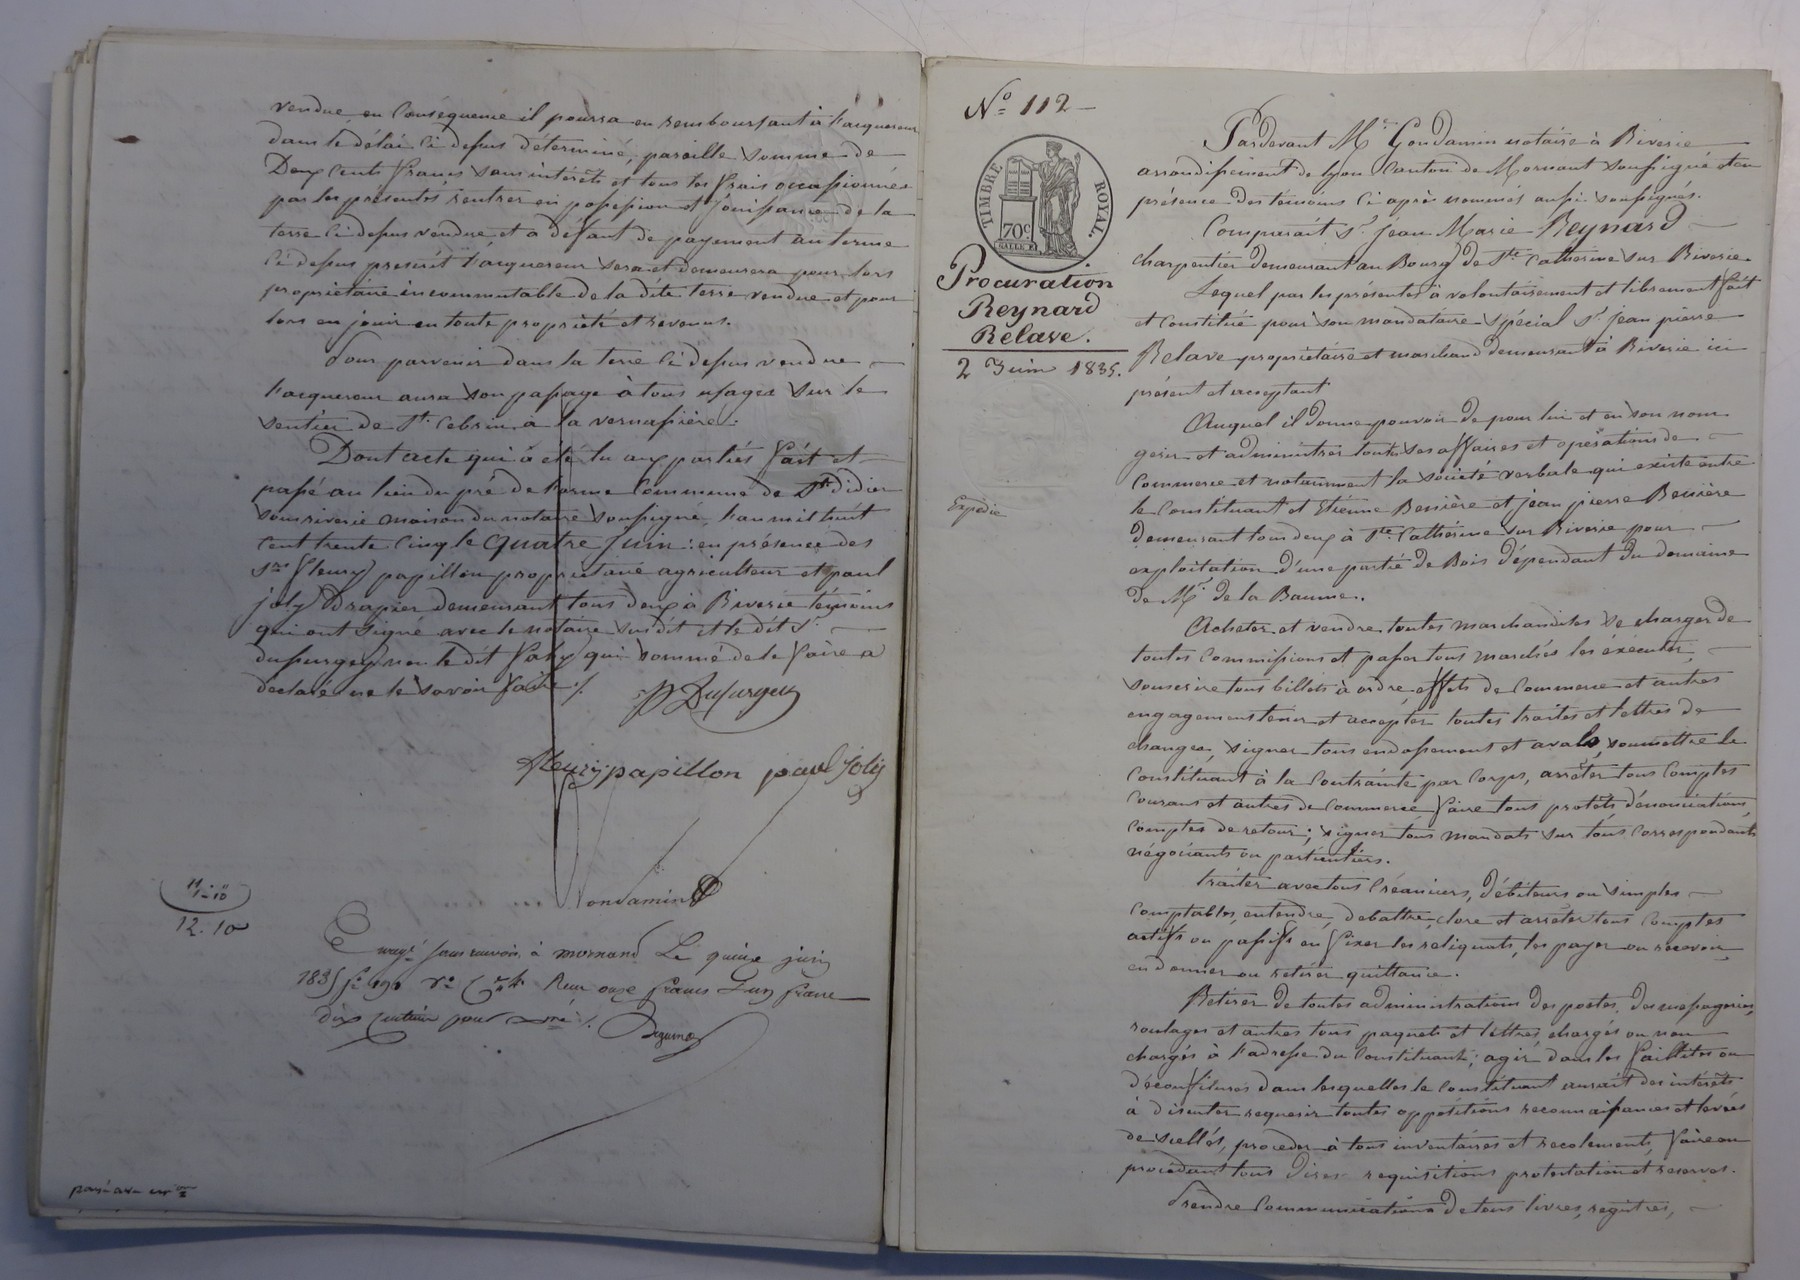 vendue en conséquence il pourra en remboursant à l'acquereur
dans le délai ci dessus déterminé, pareille somme de
Deux cents francs sans intérêts et tous les frais occasionnés
par les présentes rentrer en possession et jouissance de la
terre ci dessus vendue et a défaut de payement au terme
ci dessus prescrit l'acquereur sera et demeurera pour lors
propriétaire incommutable de la dite terre vendue et pour
lors en jouir en toute propriété et revenus.
Pour parvenir dans la terre ci dessus vendue
l'acquereur aura son passage à tous usages sur le
sentier de St. Cebrin à la vernassière.
Dont acte qui à été lu aux parties fait et
passé au lieu du pré de l'orme commune de St. Didier
sous riverie maison du notaire soussigné, l'an mil huit
cent trente cinq le quatre juin : en présence des
Srs fleury papillon propriétaire agriculteur et paul
joly drapier demeurant tous deux à Riverie témoins
qui ont signé avec le notaire susdit et le dit Sr.
dussurgey non le dit faby qui sommé de le faire a
déclaré ne le savoir faire ./.
Dussurgey
fleury papillon paul Joly
Condamin
11-10
12-10
Enregé sans renvois à mornand Le quinze juin
1835 fo 191 Vo Reçu onze francs Dun franc
dix centimes pour
No 112
TIMBRE ROYAL.
70c
Procuration
Reynard
Relave.
2 Juin 1835.
Expédié
Pardevant Me Condamin notaire à Riverie
arrondissement de lyon Canton de Mornant soussigné et en
présence des témoins ci après nommés aussi soussignés.
Comparait Sr. jean Marie Reynard
charpentier demeurant au Bourg de Ste Catherine sur Riverie.
Lequel par les présentes à volontairement et librement fait
et constitué pour son mandataire spécial Sr. jean pierre
Relave propriétaire et marchand demeurant à Riverie ici
présent et acceptant
Auquel il donne pouvoir de pour lui et en son nom
gerer et administrer toutes ses affaires et opérations de
commerce et notamment la société verbale qui existe entre
le constituant et Etienne Bessière et jean pierre Bessière
demeurant tous deux à Ste Catherine sur Riverie pour
exploitation d'une partie de Bois dépendant du domaine
de Mr. de la Baume.
Acheter et vendre toutes marchandises se charger de
toutes commissions et passer tous marchés les éxécuter,
souscrire tous billets à ordre effets de commerce et autres
engagemens tenir et accepter toutes traites et lettres de
changes, signer tous endossement et avals, soumettre le
constituant à la contrainte par corps, arrêter tous comptes
courans et autres de commerce faire tous protêts dénonciations
comptes de retour ; signer tous mandats sur tous correspondants
négociants ou particuliers.
traiter avec tous créanciers, débiteurs ou simples
comptables, entendre, debattre, clore et arrêter tous comptes
actifs ou passifs en fixer les reliquats, les payer ou recevoir
en donner ou retirer quittance.
Retirer de toutes administrations des postes, des messageries,
roulages et autres tous paquets et lettres chargés ou non
chargés à l'adresse du constituant ; agir dans les faillites ou
déconfitures dans lesquelles le constituant aurait des intérêts
à discuter requerir toutes oppositions reconnaissances et levées
de scellés, proceder à tous inventaires et recolements, faire en
procedant tous dires requisitions protestation et reserves.
Prendre communications de tous livres, registres,